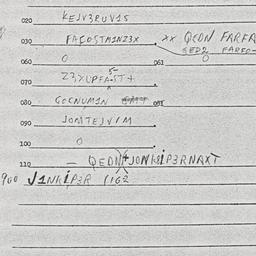 020 KEJV3RUV1S
030 FACOSTM1NZ3X xx QEDN FARFA
SED2 FARFO-
060 O 061 O
070 Z3XUPFA5T+
080 GOCNUM1N 081
090 JOMTEJV1M
100 O
110 — QEDN+JONKIP3RNAXT
900 J1NKIP3R 1162